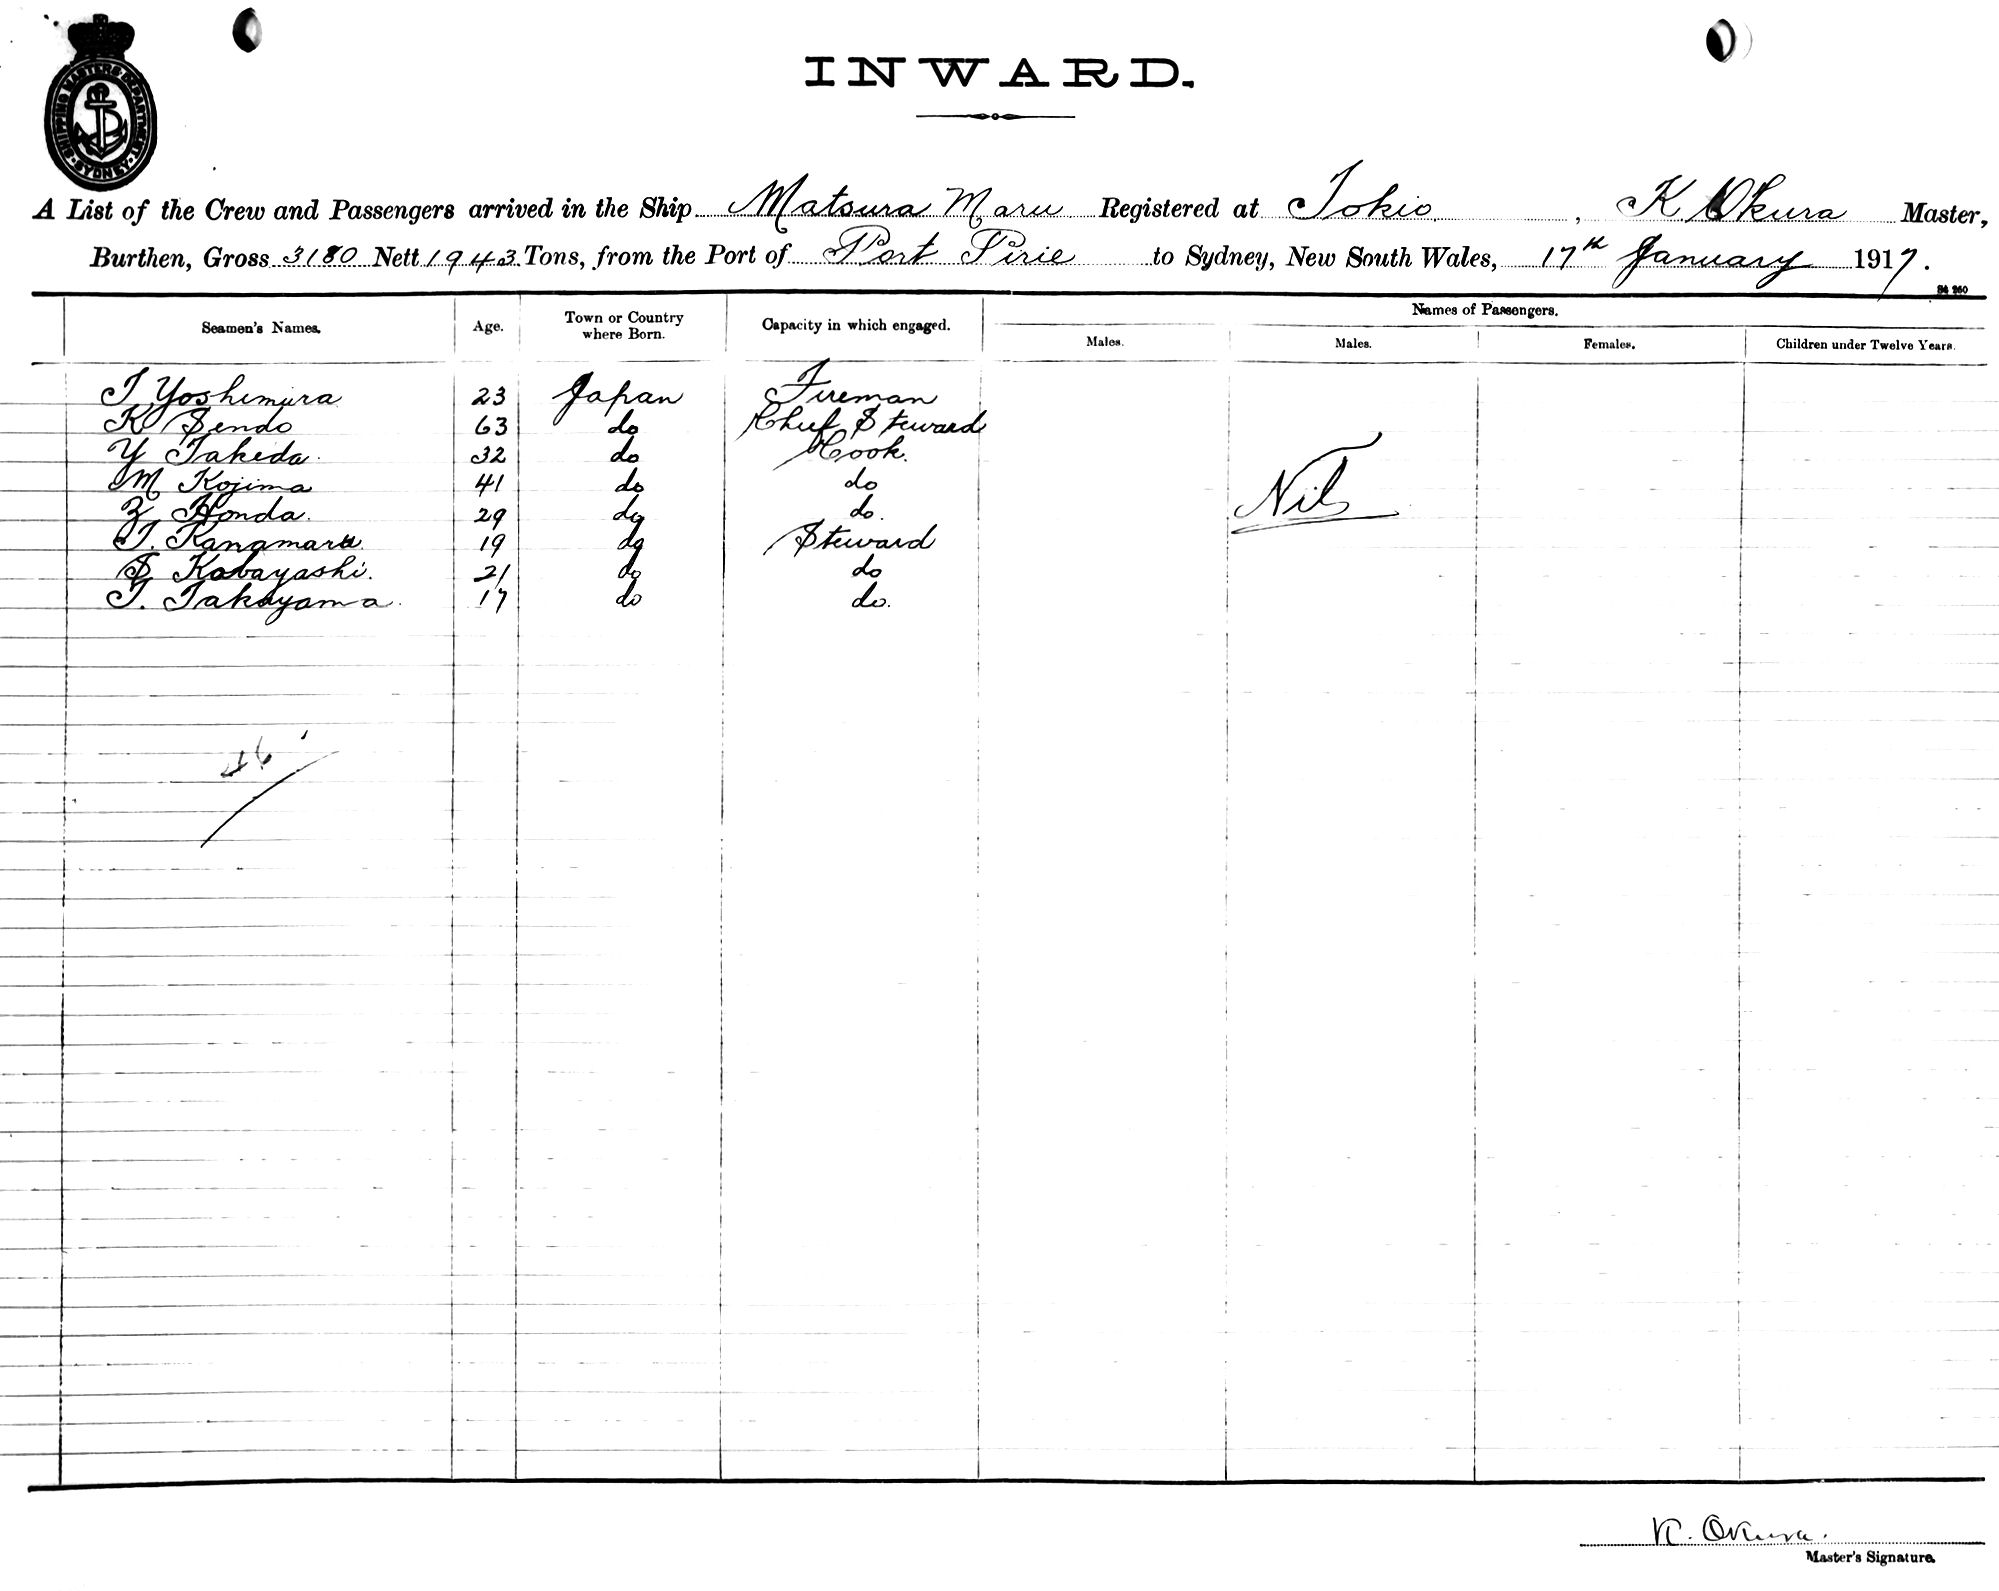 SHIPPING MASTERS DEPARTMENT SYDNEY
INWARD.
A List of the Crew and Passengers arrived in the Ship Matsura Maru Registered at Tokio, K Okura Master,
Burthen, Gross 3180 Nett 1943 Tons, from the Port of Port Pirie to Sydney, New South Wales, 17th January 1917.
S4 260
Names of Passengers.
Seamen's Names. Age. Town or Country where Born. Capacity in which engaged. Males. Males. Females. Children under Twelve Years.
T Yoshimura 23 Japan Fireman
K Sendo 63 do Chief Steward
Y Takeda. 32 do Cook.
M Kojima 41 do do
Z Honda. 29 do do.
T. Kanamaru. 19 do Steward
S Kobayashi. 21 do do
T. Takayama. 17 do do.
Nil
46
K. Okura.
Master's Signature.